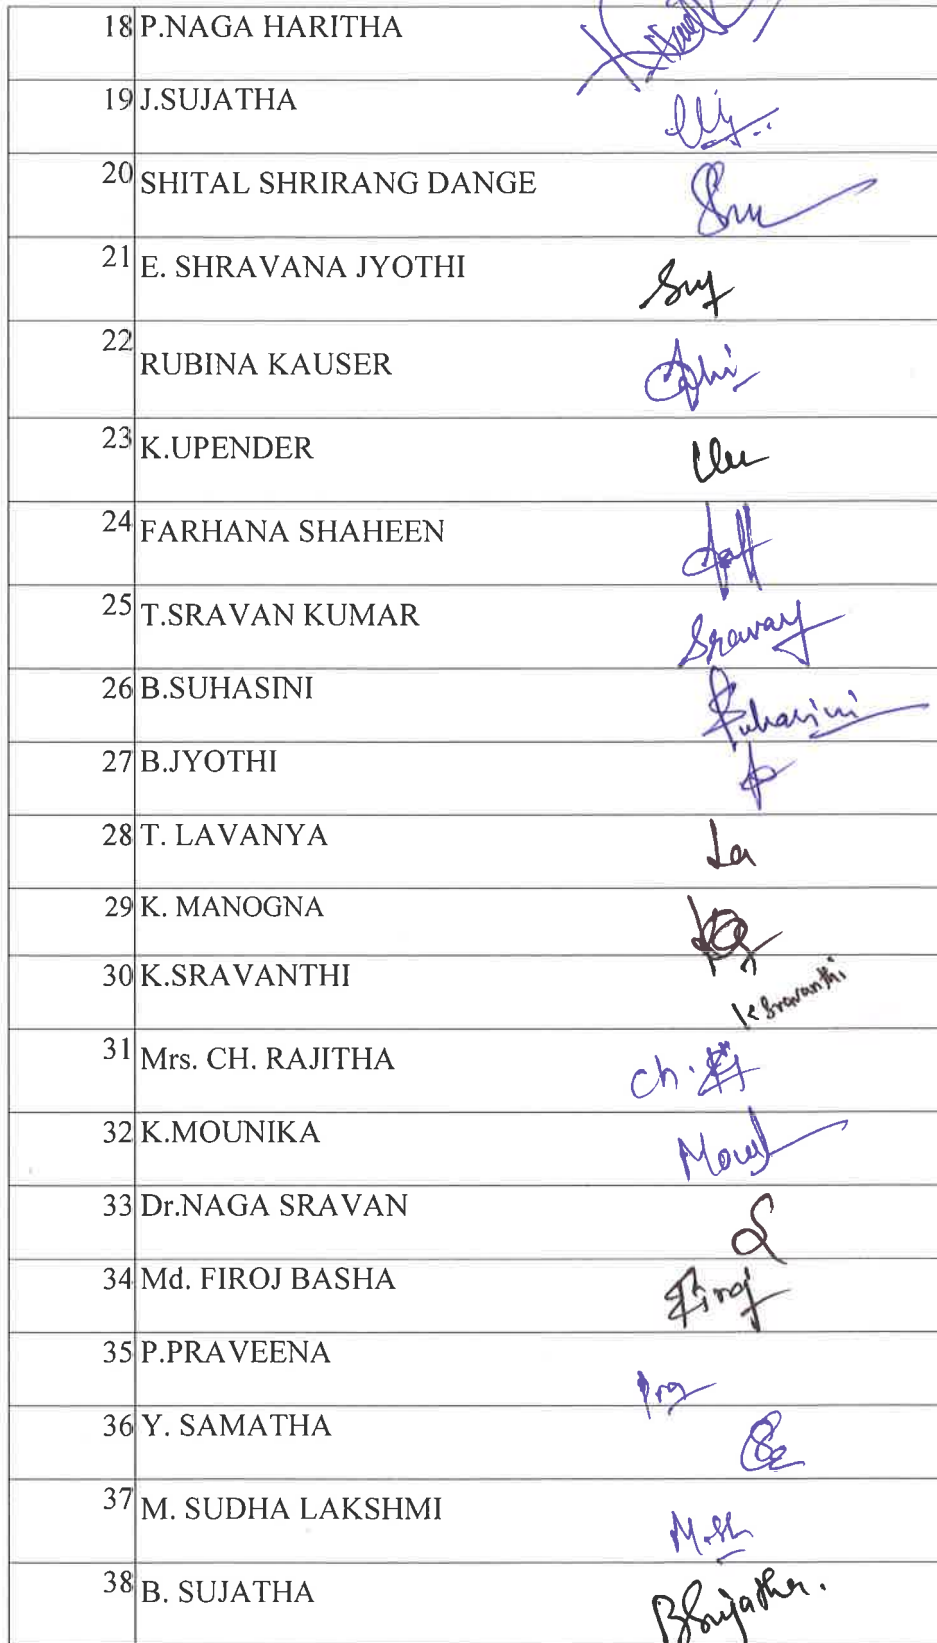 18 P.NAGA HARITHA
19 J.SUJATHA
20 SHITAL SHRIRANG DANGE
21 E. SHRAVANA JYOTHI
22 RUBINA KAUSER
23 K.UPENDER
24 FARHANA SHAHEEN
25 T.SRAVAN KUMAR
26 B.SUHASINI Suhasini
27 B.JYOTHI
28 T. LAVANYA La
29 K. MANOGNA
30 K.SRAVANTHI K Sravanthi
31 Mrs. CH. RAJITHA Ch.
32 K.MOUNIKA
33 Dr.NAGA SRAVAN
34 Md. FIROJ BASHA Firoj
35 P.PRAVEENA Pra
36 Y. SAMATHA
37 M. SUDHA LAKSHMI
38 B. SUJATHA BSujatha.